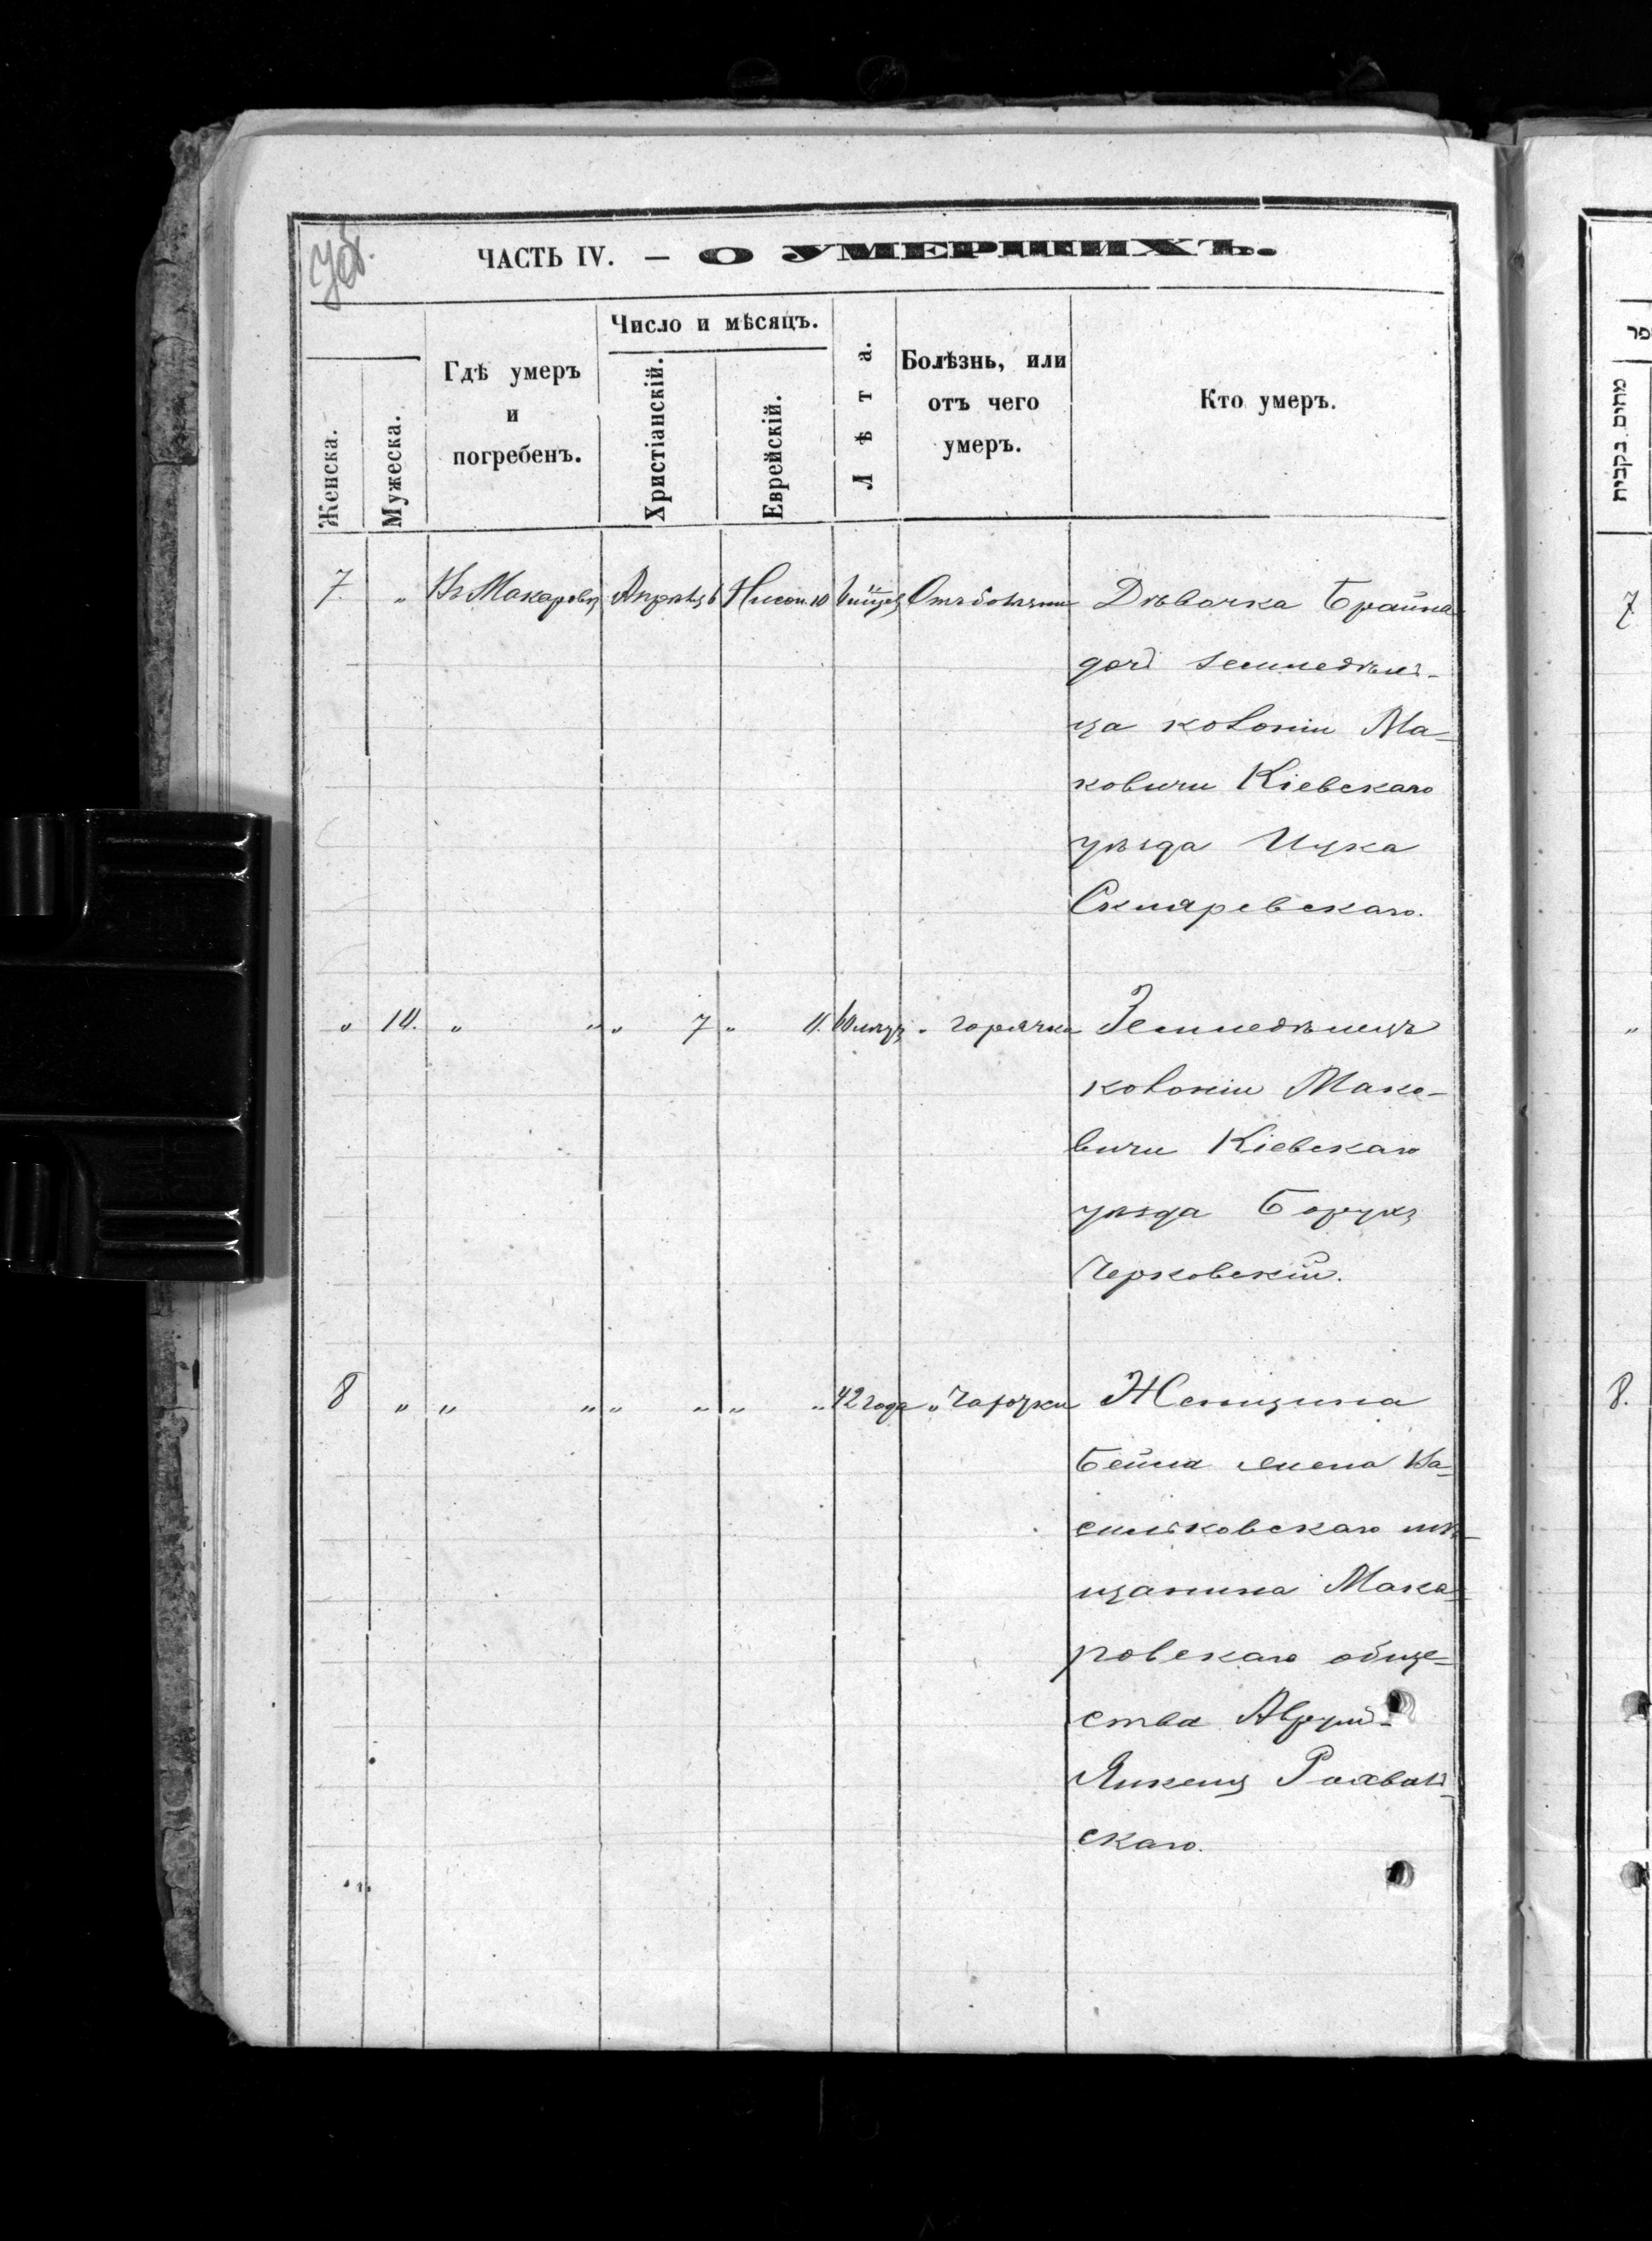 Уб.
ЧАСТЬ IV. — О УМЕРШИХЪ.
Женска.
Мужеска.
Гдѣ умеръ
и
погребенъ.
Число и мѣсяцъ.
Христіанскій.
Еврейскій.
Лѣта.
Болѣзнь, или
отъ чего
умеръ.
Кто умеръ.
7. „ Въ Макаровѣ Апрѣль 6 Нисон. 10 Отъ болѣзни Дѣвочка Брайна
дочь земледѣль-
ца колоніи Ма-
ковичи Кіевскаго
уѣзда Ицка
Скляревскаго.
„ 10. „ „ „ 7 „ 11. „ горячки Земледѣлецъ
колоніи Мако-
вичи Кіевскаго
уѣзда Борухъ
Черковскій.
8 „ „ „ „ „ „ „ 42 года „ Женщина
Бейла жена Ва-
сильковскаго мѣ-
щанина Мака-
ровскаго обще-
ства Аврум-
Янкеля Рахваль-
скаго.
פר
מתים בקבית
7
„
8.